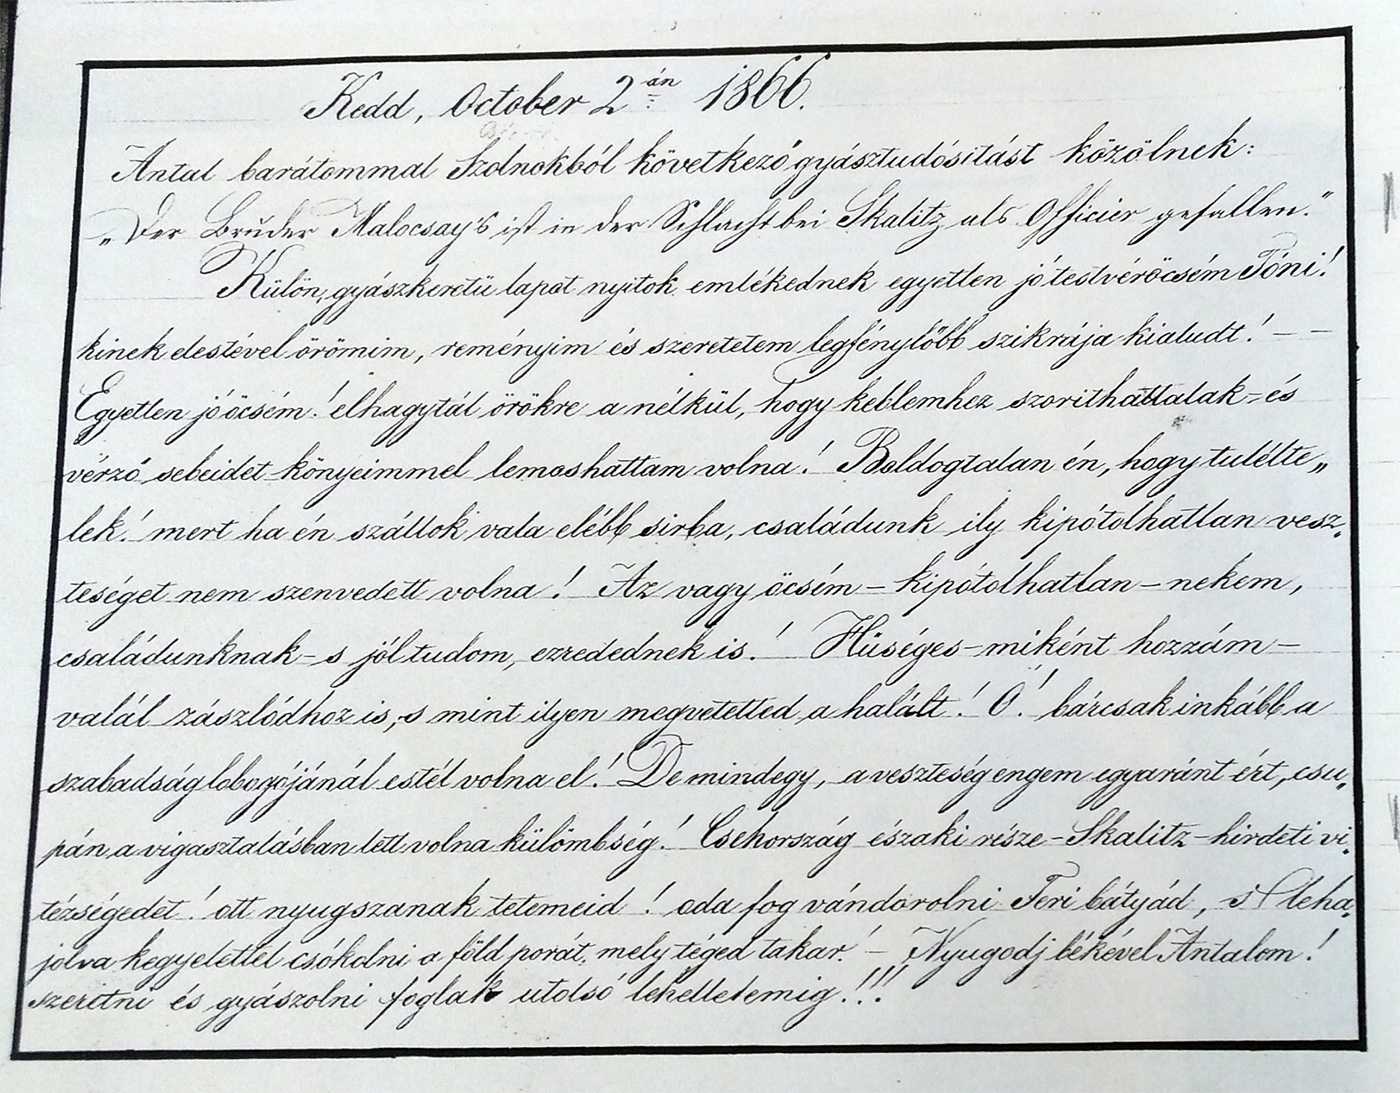 Kedd, October 2án 1866.
Antal barátommal Szolnokból következő gyásztudósitást közölnek:
„Der Bruder Malocsay's ist in der Schlacht bei Skalitz als Officier gefallen."
Külön, gyászkeretü lapot nyitok emlékednek egyetlen jó testvéröcsém Tóni!
kinek elestével örömim, reményim és szeretetem legfénylőbb szikrája kialudt! – –
Egyetlen jó öcsém! elhagytál örökre a nélkül, hogy keblemhez szorithattalak – és
vérző sebeidet könyeimmel lemoshattam volna! Boldogtalan én, hogy tulélte„
lek! mert ha én szállok vala elébb sirba, családunk ily kipótolhatlan vesz„
teséget nem szenvedett volna! Az vagy öcsém – kipótolhatlan – nekem,
családunknak – s jól tudom, ezredednek is! Hüséges – miként hozzám –
valál zászlódhoz is, s mint ilyen megvetetted a halált! O! bárcsak inkább a
szabadság lobogójánál estél volna el! De mindegy, a veszteség engem egyaránt ért, csu„
pán a vigasztalásban lett volna külömbség! Csehország északi része – Skalitz – hirdeti vi„
tézségedet! ott nyugszanak tetemeid! oda fog vándorolni Feri bátyád, s leha„
jolva kegyelettel csókolni a föld porát, mely téged takar! – Nyugodj békével Antalom!
szeretni és gyászolni foglak utolsó lehelletemig!!!